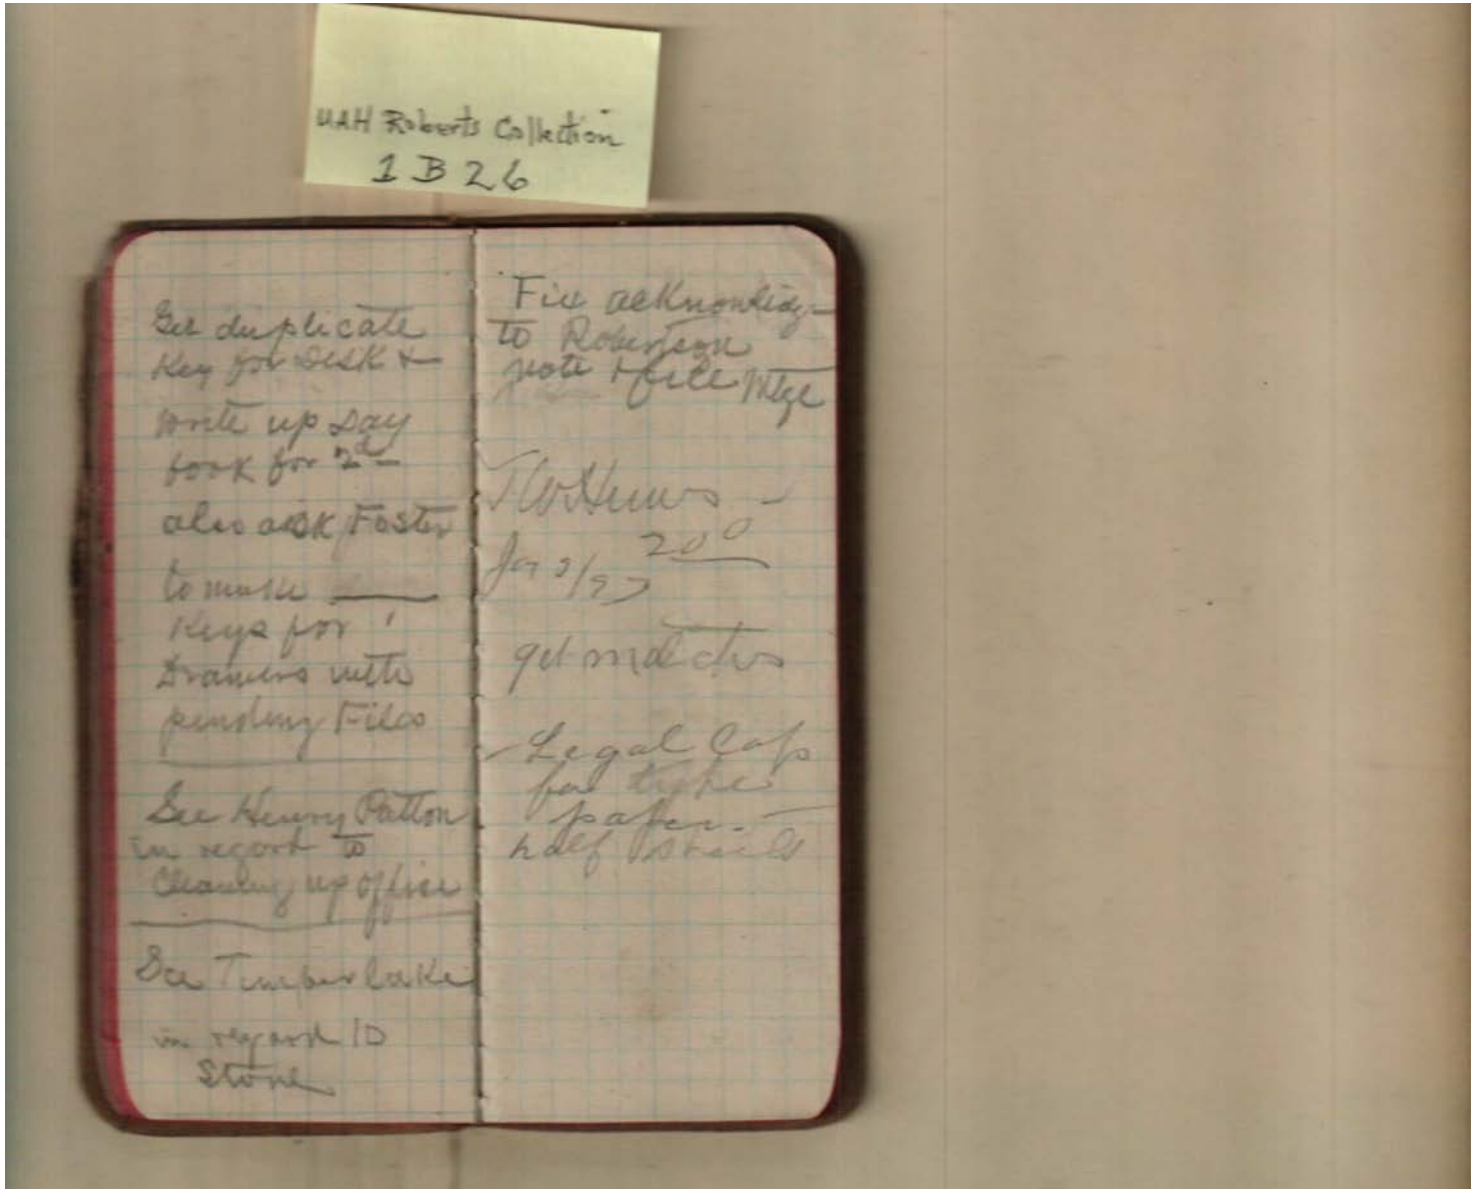 UAH Roberts Collection
1 B 26
Get duplicate
Key for Desk &
write up Day
book for 2d
also ask Foster
to make
Keys for
Drawers with
pending Files
See Henry Patton
in regard to
Cleaning up office
See Timberlake
in regard to
Stone
Fix acKnowledg
to Robertson
note & file Mtge
200
get
Legal Cap
for type
paper.
half sheets